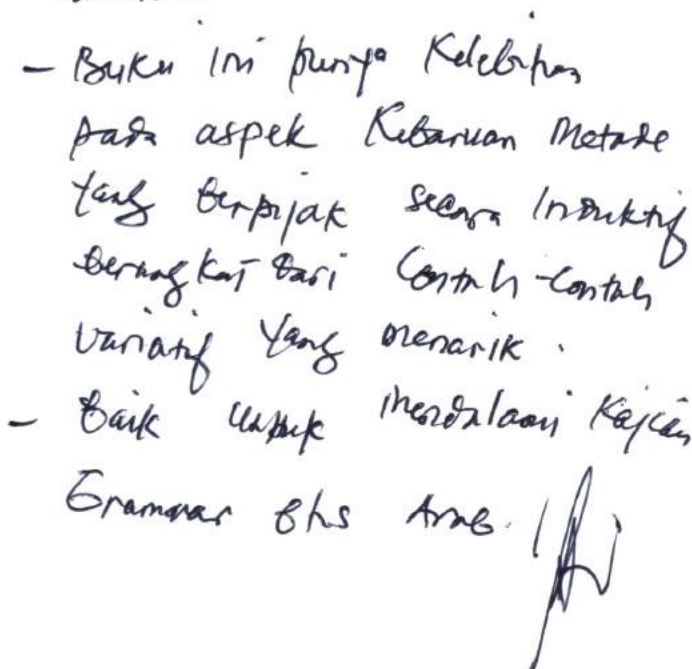 - Buku ini punya kelebihan
pada aspek Kebaruan Metode
yang berpijak secara Induktif
berangkat dari Contoh-contoh
variatif yang menarik.
- Baik untuk mendalami Kajian
Grammar Bhs Arab.